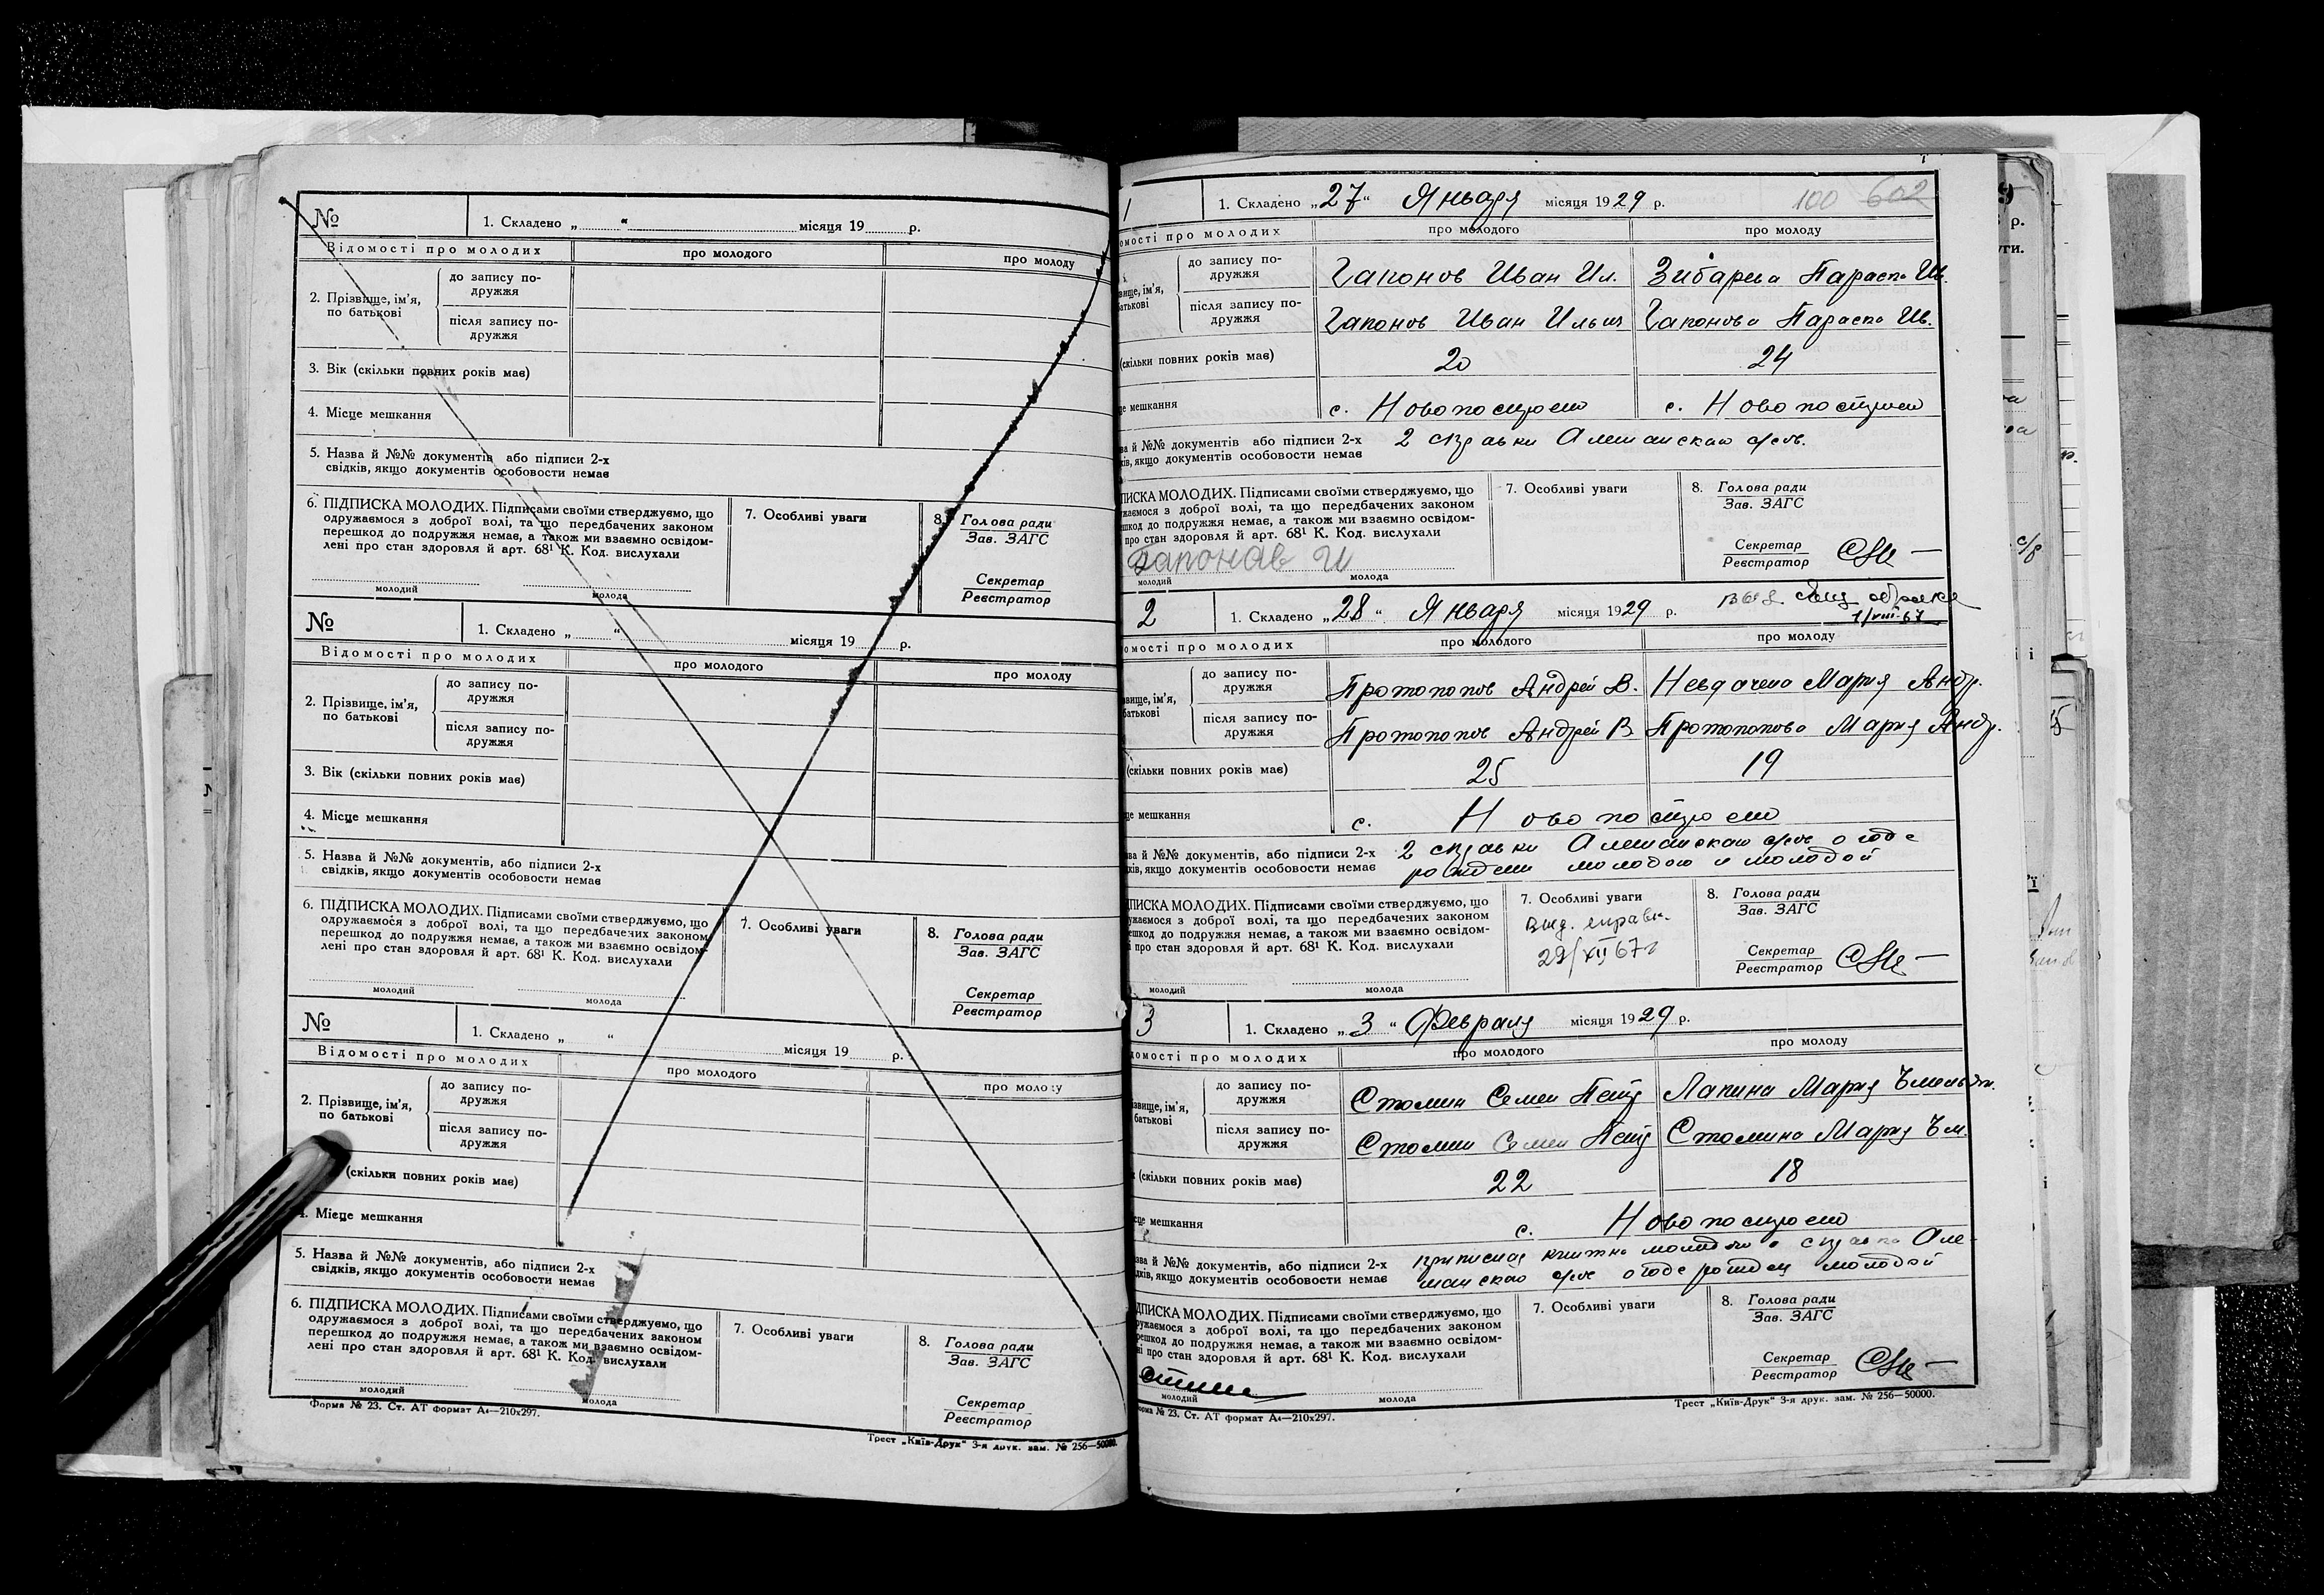 №
1. Складено „ “ місяця 19 р.
Відомості про молодих
про молодого
про молоду
2. Прізвище, ім’я, по батькові
до запису подружжя
після запису подружжя
3. Вік (скільки повних років має)
4. Місце мешкання
5. Назва й №№ документів або підписи 2-х
свідків, якщо документів особовости немає
6. ПІДПИСКА МОЛОДИХ. Підписами своїми стверджуємо, що
одружаємося з доброї волі, та що передбачених законом
перешкод до подружжя немає, а також ми взаємно освідом-
лені про стан здоровля й арт. 68¹ К. Код. вислухали
молодий
молода
7. Особливі уваги
8. Голова ради
Зав. ЗАГС
Секретар
Реєстратор
№
1. Складено „ “ місяця 19 р.
Відомості про молодих
про молодого
про молоду
2. Прізвище, ім’я,
по батькові
до запису по-
дружжя
після запису по-
дружжя
3. Вік (скільки повних років має)
4. Місце мешкання
5. Назва й №№ документів, або підписи 2-х
свідків, якщо документів особовости немає
6. ПІДПИСКА МОЛОДИХ. Підписами своїми стверджуємо, що
одружаємося з доброї волі, та що передбачених законом
перешкод до подружжя немає, а також ми взаємно освідом-
лені про стан здоровля й арт. 68¹ К. Код. вислухали
молодий
молода
7. Особливі уваги
8. Голова ради
Зав. ЗАГС
Секретар
Реєстратор
№
1. Складено „ “ місяця 19 р.
Відомості про молодих
про молодого
про молоду
2. Прізвище, ім’я,
по батькові
до запису по-
дружжя
після запису по-
дружжя
(скільки повних років має)
Місце мешкання
5. Назва й №№ документів, або підписи 2-х
свідків, якщо документів особовости немає
6. ПІДПИСКА МОЛОДИХ. Підписами своїми стверджуємо, що
одружаємося з доброї волі, та що передбачених законом
перешкод до подружжя немає, а також ми взаємно освідом-
лені про стан здоровля й арт. 68¹ К. Код. вислухали
молодий
молода
7. Особливі уваги
8. Голова ради
Зав. ЗАГС
Секретар
Реєстратор
Форма № 23. Ст. АТ формат А₄—210х297.
Трест „Київ-Друк“ 3-я друк. зам. № 256—50000.
1
1. Складено „27“ Января місяця 1929 р.
100 602
про молодих
про молодого
про молоду
до запису по-
дружжя
Гапонов Иван Ил.
Зибарева Параска Ив.
після запису по-
дружжя
Гапонов Иван Ильич
Гапонова Параска Ив.
(скільки повних років має)
20
24
мешкання
с. Новопостроено
с. Новопостроено
й №№ документів або підписи 2-х
якщо документів особовости немає
2 справки Алешанская с/сов.
МОЛОДИХ. Підписами своїми стверджуємо, що
з доброї волі, та що передбачених законом
до подружжя немає, а також ми взаємно освідом-
про стан здоровля й арт. 68¹ К. Код. вислухали
Гапонав И
молодий
молода
7. Особливі уваги
8. Голова ради
Зав. ЗАГС
Секретар
Реєстратор
2
1. Складено „28“ Января місяця 1929 р.
1/VIII-67
про молодих
про молодого
про молоду
до запису по-
дружжя
Протопопов Андрей В.
Невдачена Мария Андр.
після запису по-
дружжя
Протопопов Андрей В
Протопопова Мария Андр.
(скільки повних років має)
25
19
мешкання
с. Новопостроено
й №№ документів, або підписи 2-х
якщо документів особовости немає
2 справки Алешанскою с/сов о годе
рождения молодого и молодой
МОЛОДИХ. Підписами своїми стверджуємо, що
з доброї волі, та що передбачених законом
до подружжя немає, а також ми взаємно освідом-
про стан здоровля й арт. 68¹ К. Код. вислухали
молодий
молода
7. Особливі уваги
Выд. справк.
29/XII 67г
8. Голова ради
Зав. ЗАГС
Секретар
Реєстратор
3
1. Складено „3“ Февраля місяця 1929 р.
про молодих
про молодого
про молоду
до запису по-
дружжя
Стомин Семен Петр
Лапина Мария Емельян.
після запису по-
дружжя
Стомин Семен Петр
Стомина Мария Ем.
(скільки повних років має)
22
18
мешкання
с. Новопостроено
й №№ документів, або підписи 2-х
якщо документів особовости немає
приписная книжка молодого и справка Але-
шанскао с/сов о годе рожден молодой
МОЛОДИХ. Підписами своїми стверджуємо, що
з доброї волі, та що передбачених законом
до подружжя немає, а також ми взаємно освідом-
про стан здоровля й арт. 68¹ К. Код. вислухали
молодий
молода
7. Особливі уваги
8. Голова ради
Зав. ЗАГС
Секретар
Реєстратор
№ 23. Ст. АТ формат А₄—210х297.
Трест „Київ-Друк“ 3-я друк. зам. № 256—50000.